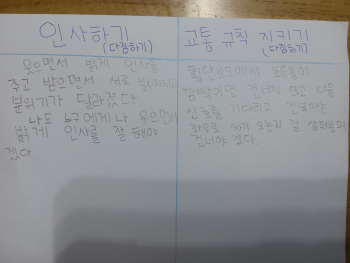 인사하기
(다짐하기)
웃으면서 밝게 인사를
주고 받으면서 서로
분위기가 달라졌다
나도 누구에게나 웃으면서
밝게 인사를 잘 해야
겠다
교통 규칙 지키기
(다짐하기)
횡단보도에서
깜빡이면 건너지 않고 다음
신호를 기다리고 건널때는
차가 오는지 잘 살펴보며
건너야 겠다.